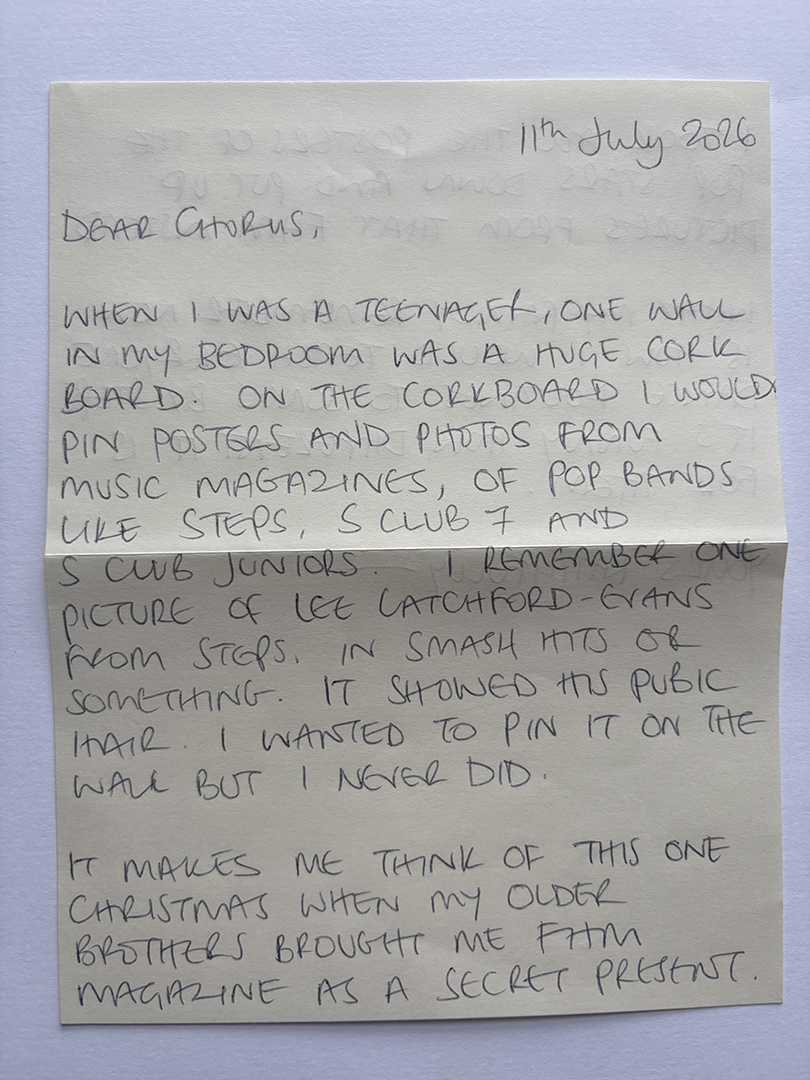 11th July 2026
DEAR CHORUS,
WHEN I WAS A TEENAGER, ONE WALL
IN MY BEDROOM WAS A HUGE CORK
BOARD. ON THE CORKBOARD I WOULD
PIN POSTERS AND PHOTOS FROM
MUSIC MAGAZINES, OF POP BANDS
LIKE STEPS, S CLUB 7 AND
S CLUB JUNIORS. I REMEMBER ONE
PICTURE OF LEE LATCHFORD-EVANS
FROM STEPS. IN SMASH HITS OR
SOMETHING. IT SHOWED HIS PUBIC
HAIR. I WANTED TO PIN IT ON THE
WALL BUT I NEVER DID.
IT MAKES ME THINK OF THIS ONE
CHRISTMAS WHEN MY OLDER
BROTHERS BROUGHT ME FHM
MAGAZINE AS A SECRET PRESENT.